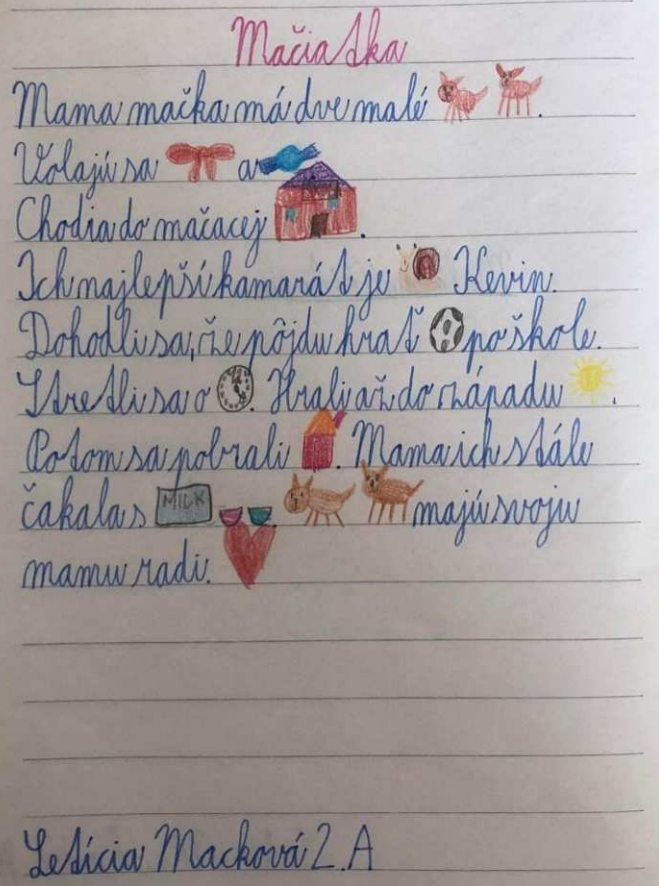 Mačiatka
Mama mačka má dve malé .
Volajú sa a
Chodia do mačacej .
Ich najlepší kamarát je Kevin.
Dohodli sa, že pôjdu hrať po škole.
Stretli sa o . Hrali až do západu .
Potom sa pobrali . Mama ich stále
čakala s MILK . majú svoju
mamu radi.
Letícia Macková 2. A